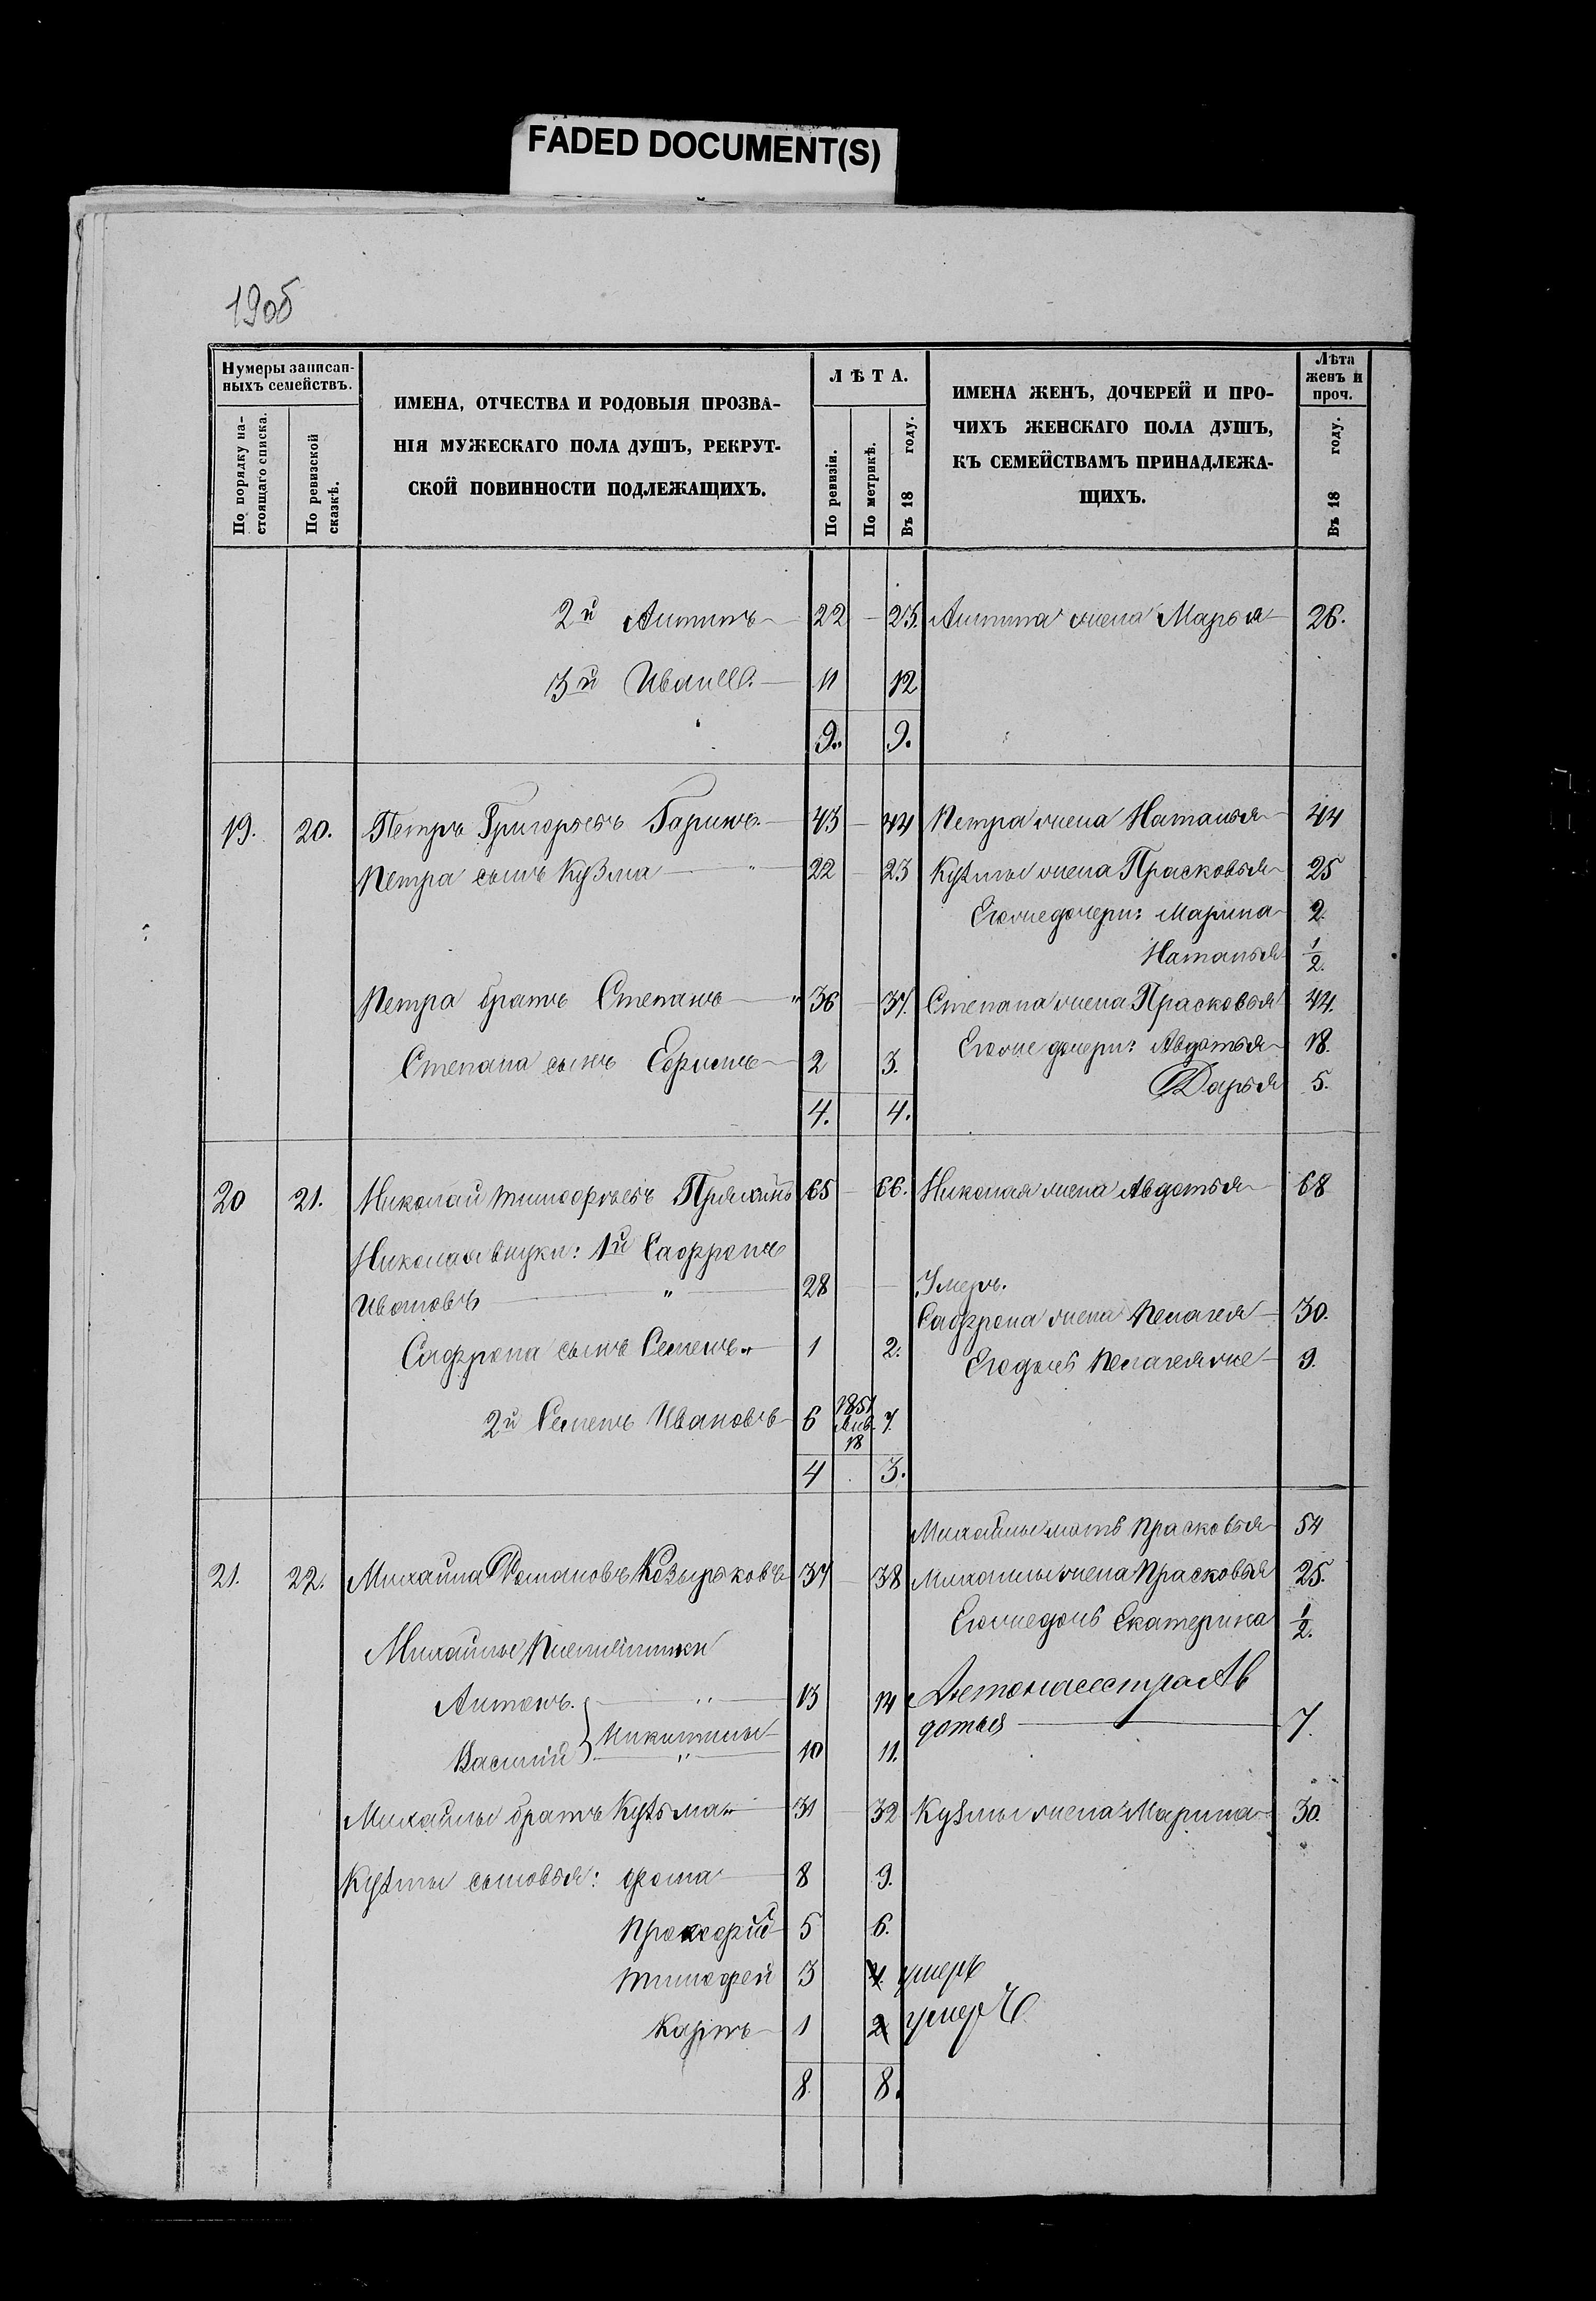 FADED DOCUMENT(S)
190б
Нумеры записан-
ныхъ семействъ.
По порядку на-
стоящаго списка.
По ревизской
сказкѣ.
ИМЕНА, ОТЧЕСТВА И РОДОВЫЯ ПРОЗВА-
НІЯ МУЖЕСКАГО ПОЛА ДУШЪ, РЕКРУТ-
СКОЙ ПОВИННОСТИ ПОДЛЕЖАЩИХЪ.
ЛѢТА.
По ревизіи.
По метрикѣ.
Въ 18 году.
ИМЕНА ЖЕНЪ, ДОЧЕРЕЙ И ПРО-
ЧИХЪ ЖЕНСКАГО ПОЛА ДУШЪ,
КЪ СЕМЕЙСТВАМЪ ПРИНАДЛЕЖА-
ЩИХЪ.
Лѣта
женъ и
проч.
Въ 18 году.
2й Антипъ 22 23. Антипа жена Марья 26.
3й Иванъ. 11 12
9. 9.
19. 20. Петръ Григорьевъ Гаринъ. 43 44 Петра жена Наталья 44
Петра сынъ Кузма 22 23 Кузмы жена Прасковья 25
Егожедочери: Марина 2.
Наталья 1/2.
Петра братъ Степанъ 36 37. Степана жена Прасковья 44.
Степана сынъ Ефимъ 2 3. Егоже дочери: Авдотья 18.
Дарья 5.
4. 4.
20 21. Николай Тимофѣевъ 65 66. Николая жена Авдотья 68
Николая внуки: 1й Сафронъ
Ивановъ 28 Умеръ.
Сафрона жена Пелагея 30.
Сафрона сынъ Семенъ 1 2. Егодочь Пелагея же 9.
2й Семенъ Ивановъ 6 1851 Янв. 18 7.
4 3.
Михайлы мать Прасковья 54
21. 22. Михаила Романовъ Козырьковъ 37 38 Михайлы жена Прасковья 25.
Егожедочь Екатерина 1/2.
Михайлы Племянники
Антонъ. 13 14 сестра Ав
дотья 7.
Василій } Никитины 10 11.
Михайлы братъ Кузьма 31 32 Кузмы жена Марина 30.
Кузмы сыновья: Фома 8 9.
Прокофій 5 6.
Тимофей 3 4. умеръ
Карпъ 1 2 умеръ
8. 8.